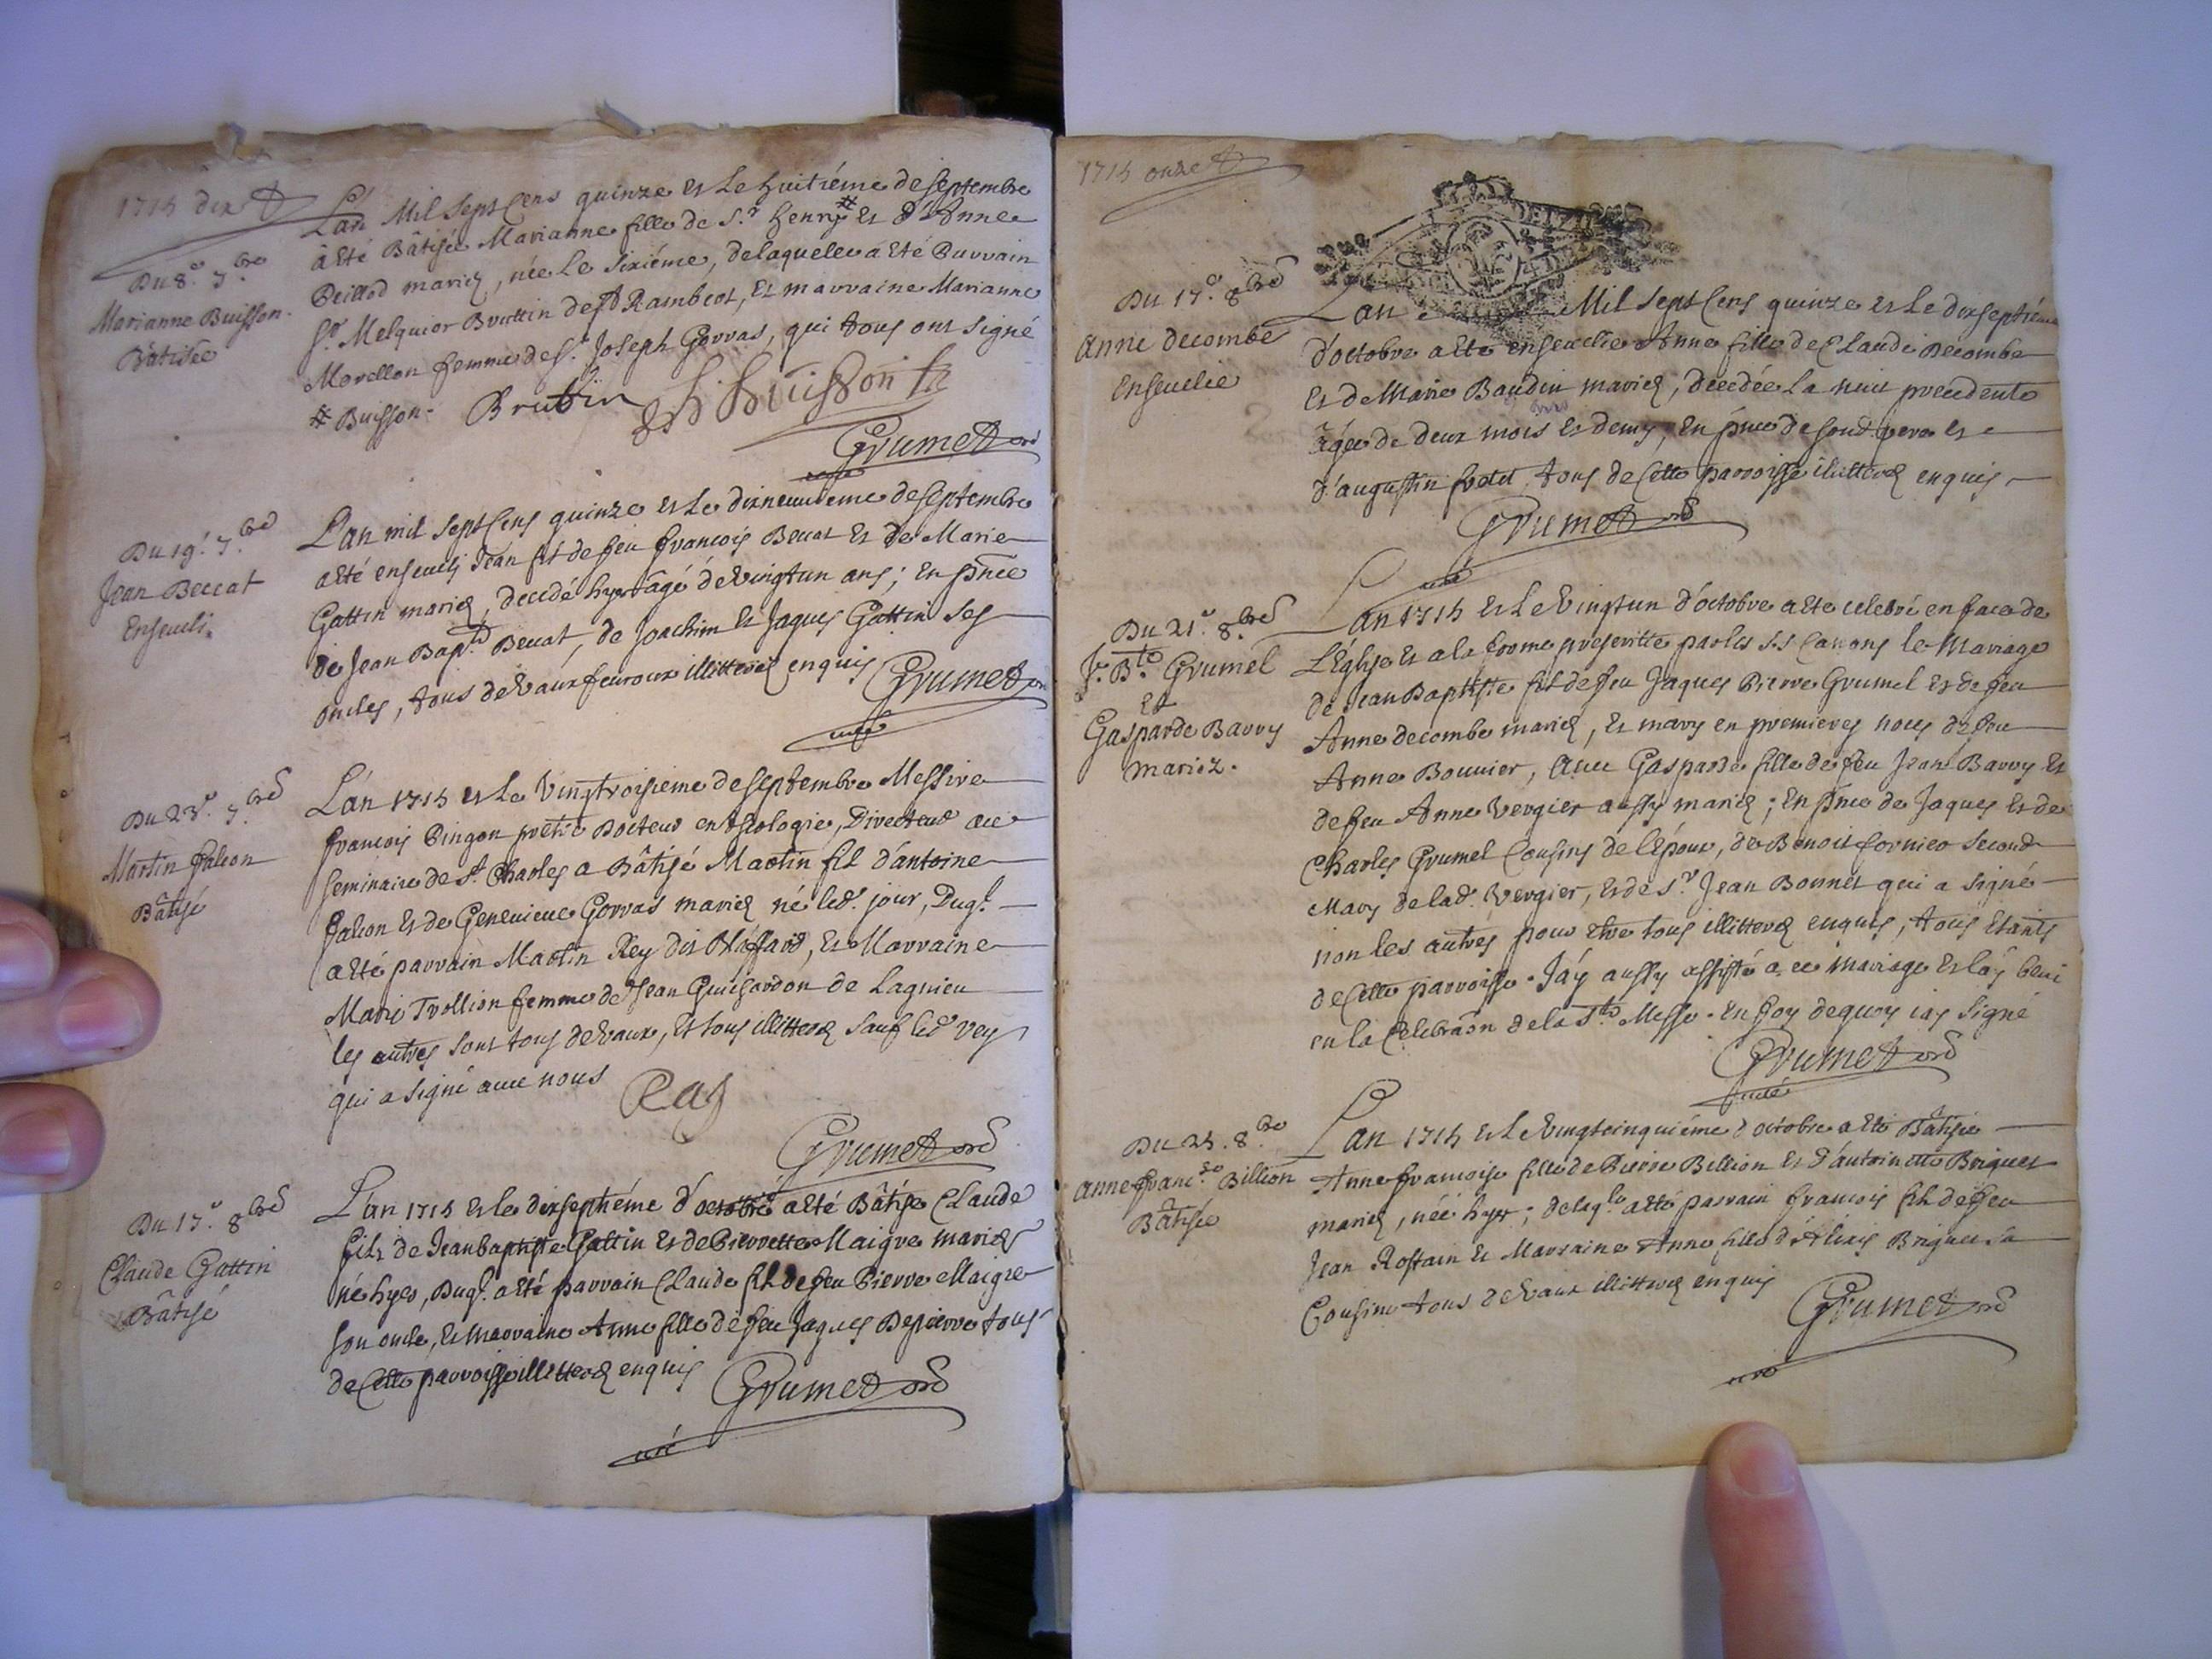 1715 dix
Du 8.e 7.bre
Marianne Buisson
Bâtisée
L'an Mil Sept Cens quinze et Le huitiéme de Septembre
à Eté Bâtisée Marianne fille de S.r henry # Et d'Anne
Peillod mariez, née Le Sixiéme, delaquelle a Eté Parrain
S.r Melquior Bruttin de St Rambert, Et marraine Marianne
Morellon femme de S.r Joseph Gorras, qui tous ont Signé
# Buisson. Brutin h buisson
Grumet
curé
Du 19.e 7.bre
Jean Beccat
Enseveli.
L'an mil Sept Cens quinze et Le dixneuvieme de Septembre
a Eté enseveli Jean fil de feu françois Beccat Et de Marie
Gattin mariez, decedé hyer âgé de Vingtun ans ; En p̃nce
de Jean Bap.te Beccat, de Joachim Et Jaques Gattin Ses
oncles, tous de Vaux feuroux illitterez enquis Grumet
curé
Du 23.e 7.bre
Martin falcon
Bâtisé
L'an 1715 et Le Vingtroisieme de Septembre Messire
francois Pingon prêtre Docteur en theologie, Directeur au
Seminaire de St. Charles a Bâtisé Martin fil d'antoine
falcon Et de Genevieve Gorras mariez né led. jour, Duq.l
a Eté parrain Martin Rey dit Bliffard, Et Marraine
Marie Trollion femme de Jean Guichardon de Lagnieu
les autres sont tous de Vaux, Et tous illitterez Sauf led. Rey
qui a Signé avec nous Rey
Grumet
Du 17.e 8.bre
Claude Gattin
Bâtisé
L'an 1715 et le dixseptiéme d'octobre a Eté Bâtisé Claude
fils de Jean Baptiste Gattin Et de Pierrette Maigre mariez
né hyer, Duq.l a Eté parrain Claude fil de feu Pierre Maigre
son oncle, Et marraine Anne fille de feu Jaques Depierre tous
de Cette parroisse illitterez enquis Grumet
curé
1715 onze
Du 17.e 8.bre
Anne decombe
Ensevelie
L'an Mil Sept Cens quinze et Le dixseptiéme
d'octobre a Eté ensevelie Anne fille de Claude Decombe
Et de Marie Baudin mariez, decedée La nuit precedente
âgée de deux mois Et demy, En p̃nce de Sond. pere et
d'augustin fretet, tous de Cette parroisse illitterez enquis
Grumet
curé
Du 21.e 8.bre
J.n B.te Grumel
Et
Gasparde Barry
mariez.
L'an 1715 et Le Vingtun d'octobre a Eté celebré en face de
L'Eglise Et a la forme prescritte par les S.s Canons le Mariage
de Jean Baptiste fil de feu Jaques Pierre Grumel Et de feu
Anne decombe mariez, Et mary en premieres noces de feu
Anne Bouvier, avec Gasparde fille de feu Jean Barry Et
de feu Anne Vergier aussy mariez ; En p̃nce de Jaques Et de
Charles Grumel Cousins de l'époux, de Benoit fornier Second
Mary de lad. Vergier, Et de S.r Jean Bonnet qui a Signé
non les autres pour etre tous illitterez enquis, tous Etants
de Cette parroisse. J'ay aussy assisté a ce mariage Et l'ay beni
en la Celebraõn de la S.te Messe. En foy de quoy iay Signé
Grumet
curé
Du 25. 8.bre
Anne franc.se Billion
Bâtisée
L'an 1715 et Le Vingtcinquiéme d'octobre a Eté Bâtisée
Anne francoise fille de Pierre Billion Et d'antoinette Briguet
mariez, née hyer ; delaq.le a Eté parrain francois fil de feu
Jean Rostain Et Marraine Anne fille d'Alexis Briguet Sa
Cousine tous de Vaux illitterez enquis Grumet
curé